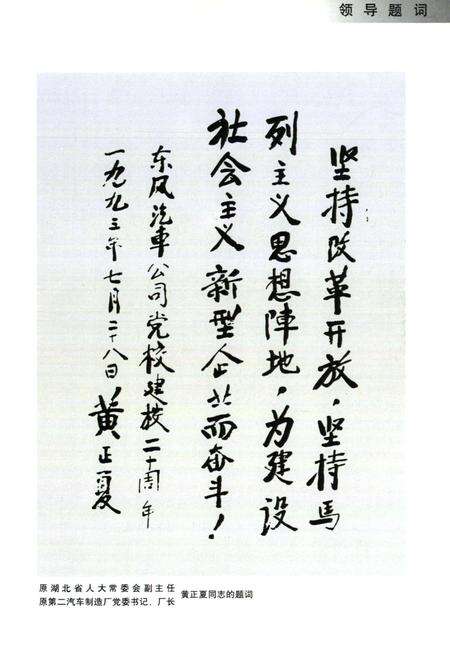 领导题词
坚持改革开放，坚持马
列主义思想陣地，为建设
社会主义新型企业而奋斗！
东风汽車公司党校建校二十周年
一九九三年七月二十八日 黄正夏
原湖北省人大常委会副主任
原第二汽车制造厂党委书记、厂长
黄正夏同志的题词